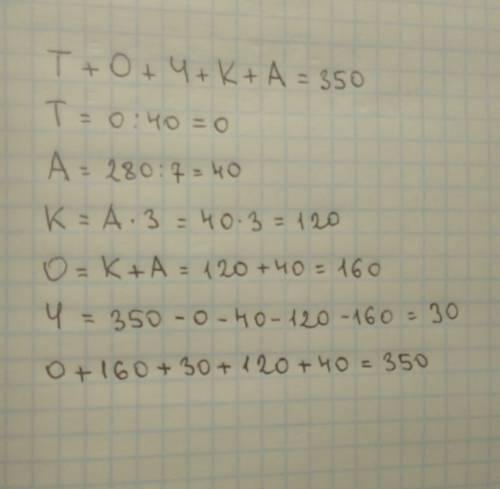 Т + О + Ч + К + А = 350
Т = 0 : 40 = 0
А = 280 : 7 = 40
К = А · 3 = 40 · 3 = 120
О = К + А = 120 + 40 = 160
Ч = 350 - 0 - 40 - 120 - 160 = 30
0 + 160 + 30 + 120 + 40 = 350